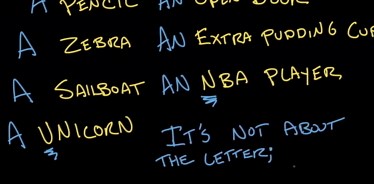 A PENCIL AN OPEN DOOR
A ZEBRA AN EXTRA PUDDING CUP
A SAILBOAT AN NBA PLAYER
A UNICORN IT'S NOT ABOUT
THE LETTER;